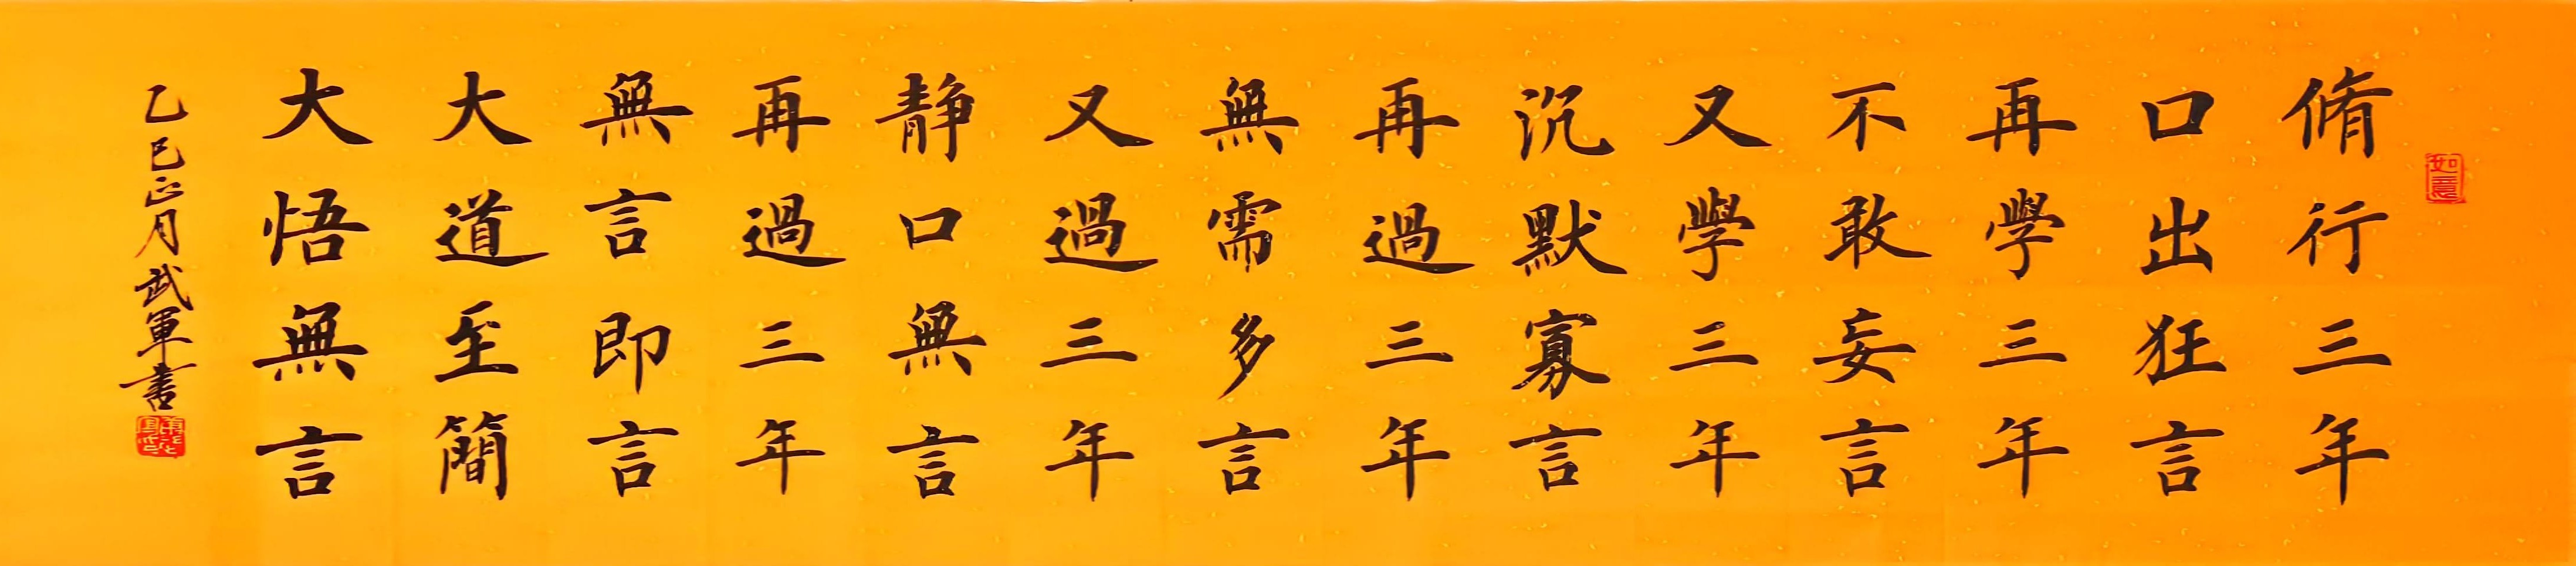 如意
脩行三年
口出狂言
再學三年
不敢妄言
又學三年
沉默寡言
再過三年
無需多言
又過三年
静口無言
再過三年
無言即言
大道至簡
大悟無言
乙巳正月武軍書